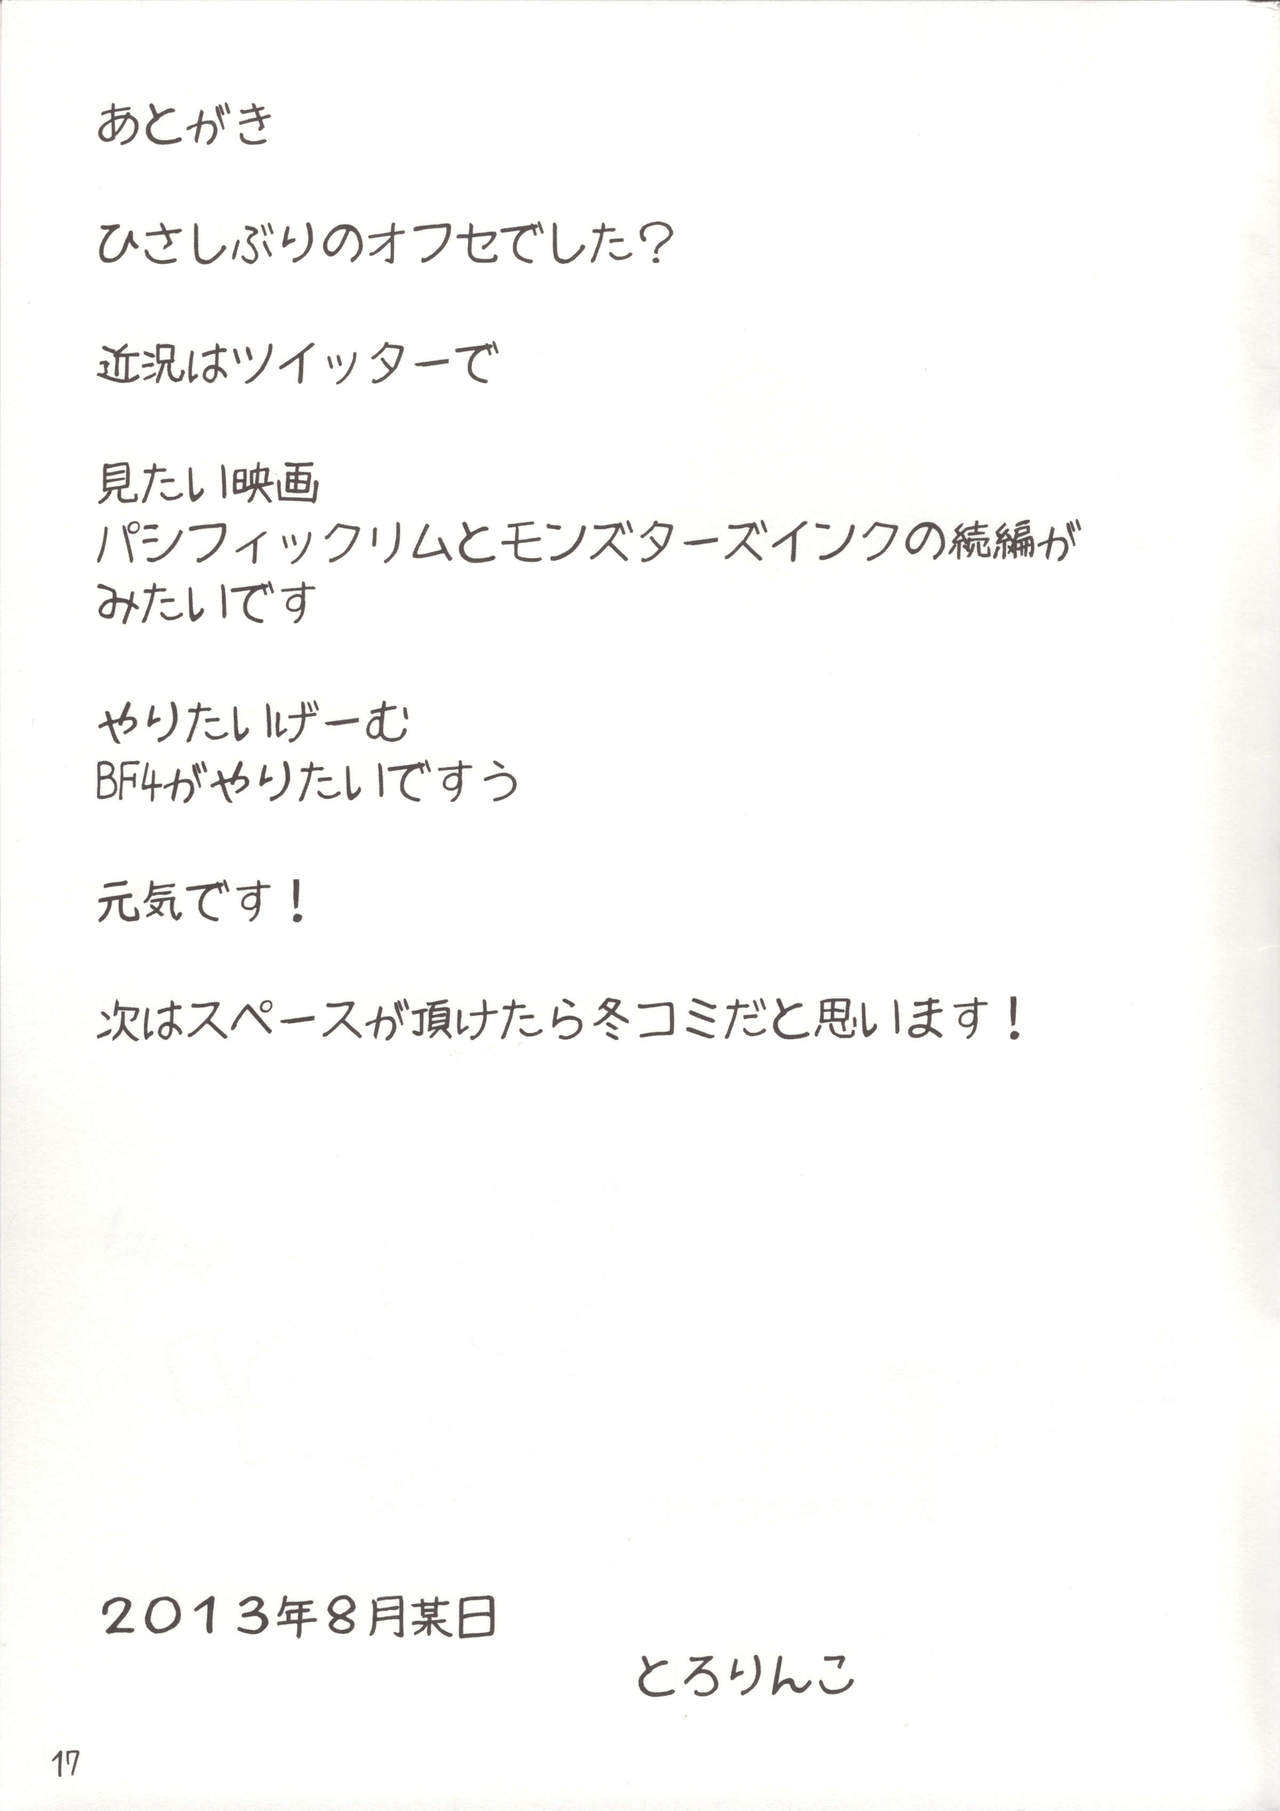 あとがき
ひさしぶりのオフセでした？
近況はツイッターで
見たい映画
パシフィックリムとモンズターズインクの続編が
みたいです
やりたいげーむ
BF4がやりたいですぅ
元気です！
次はスペースが頂けたら冬コミだと思います！
２０１３年８月某日
とろりんこ
17